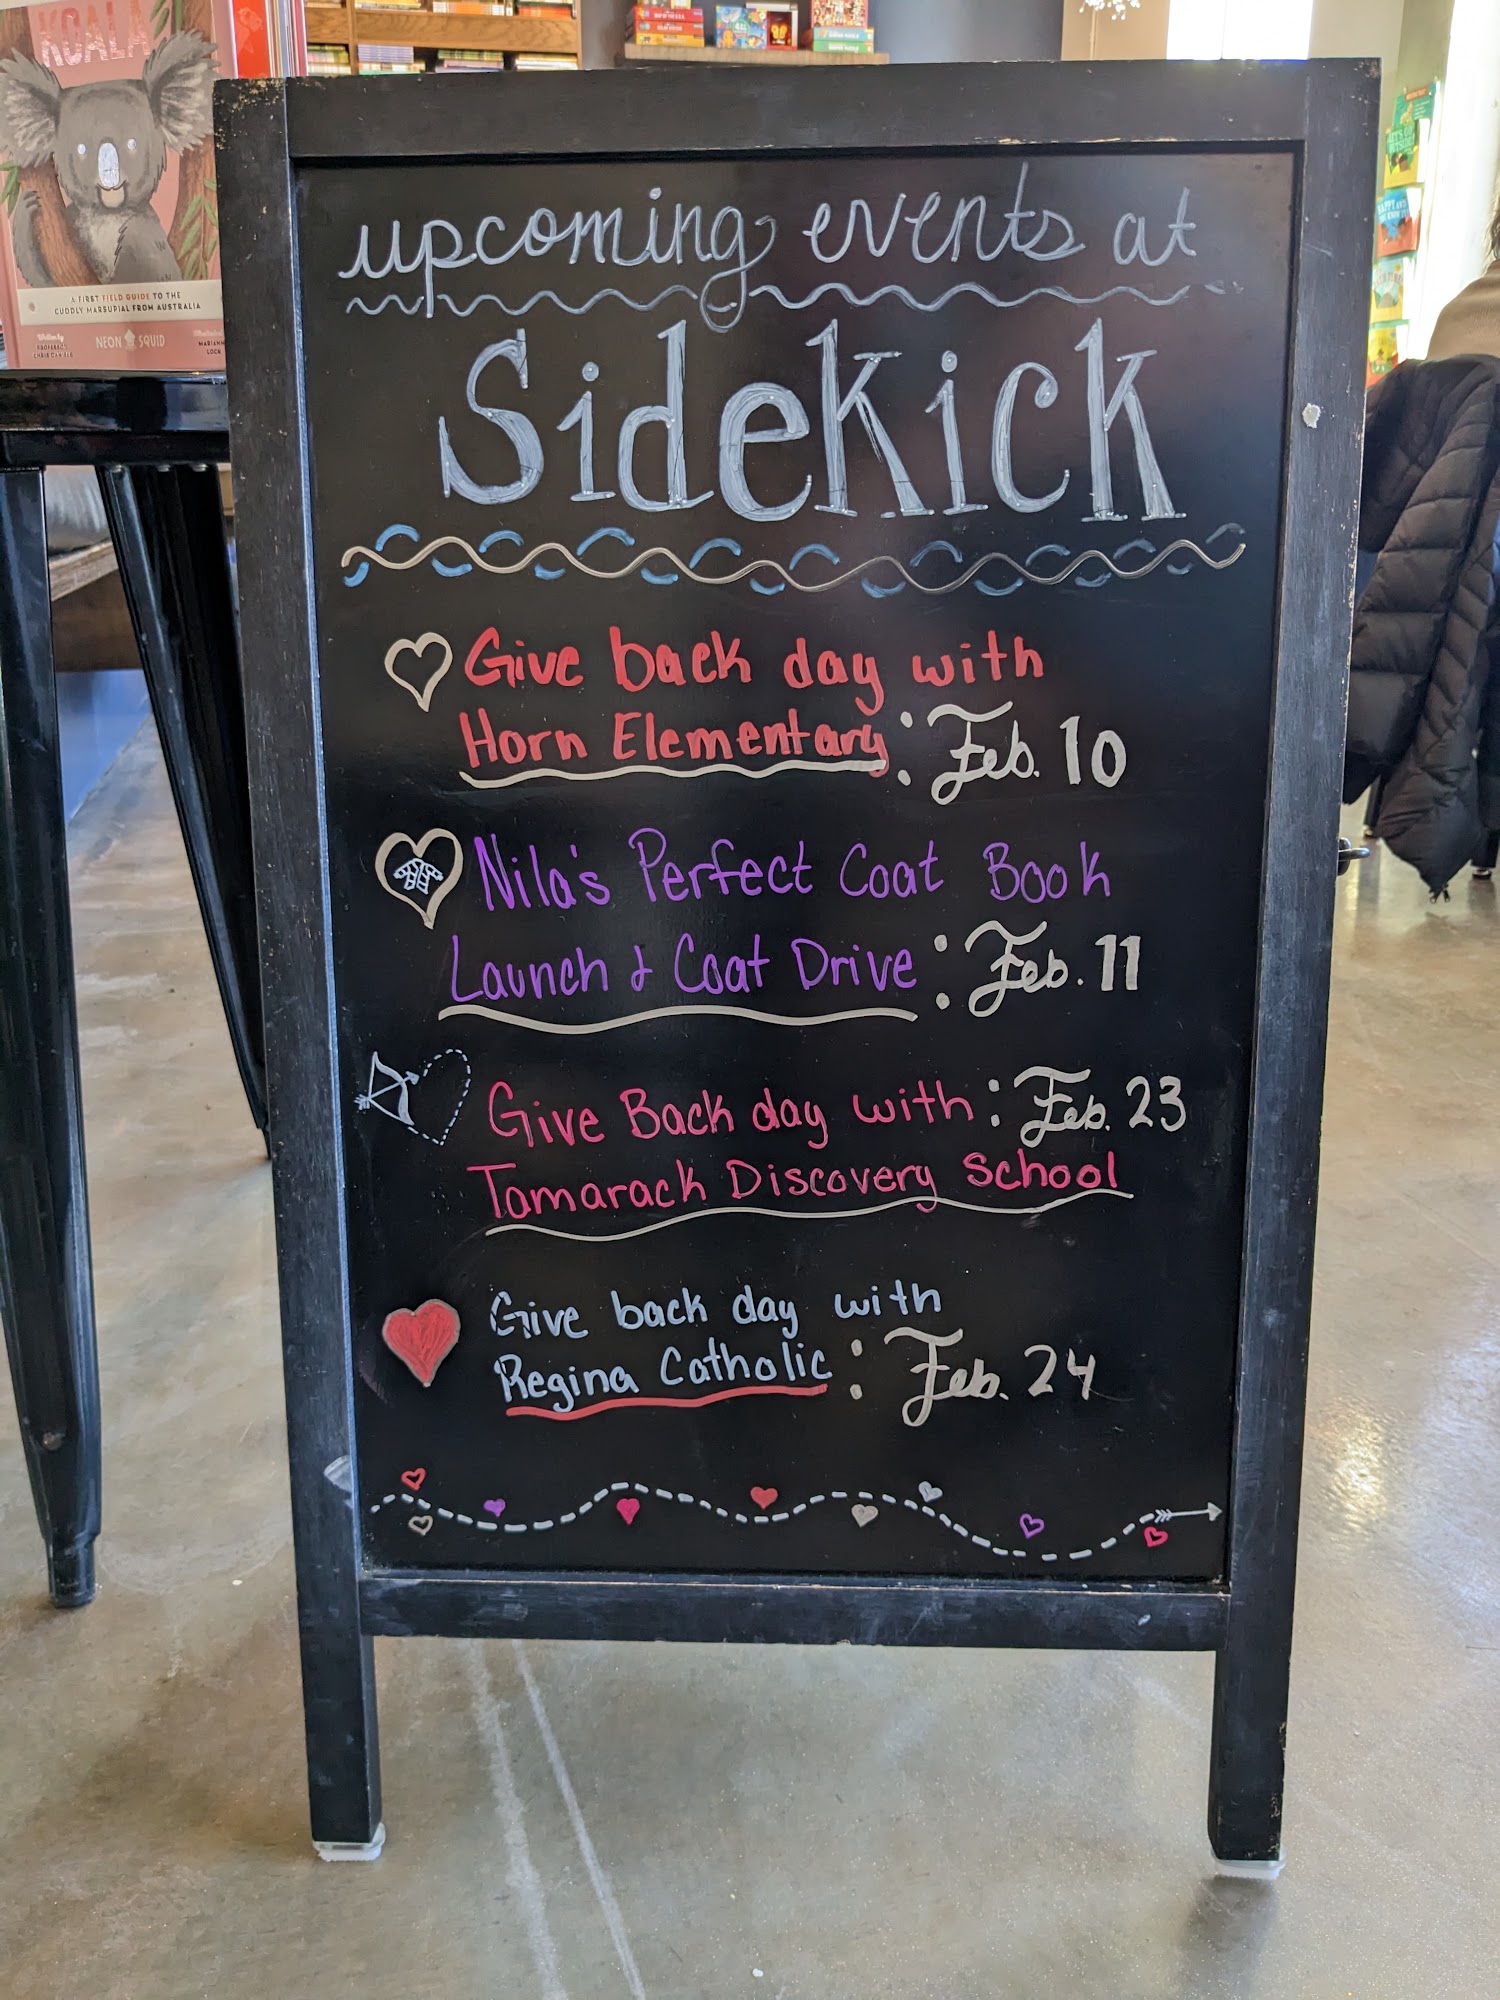 KOALA
A FIRST FIELD GUIDE TO THE
CUDDLY MARSUPIAL FROM AUSTRALIA
Written by
PROFESSOR
NEON SQUID
MARIANNA
upcoming events at
Sidekick
Give back day with
Horn Elementary: Feb. 10
Nila's Perfect Coat Book
Launch & Coat Drive: Feb. 11
Give Back day with: Feb. 23
Tamarack Discovery School
Give back day with
Regina Catholic: Feb. 24